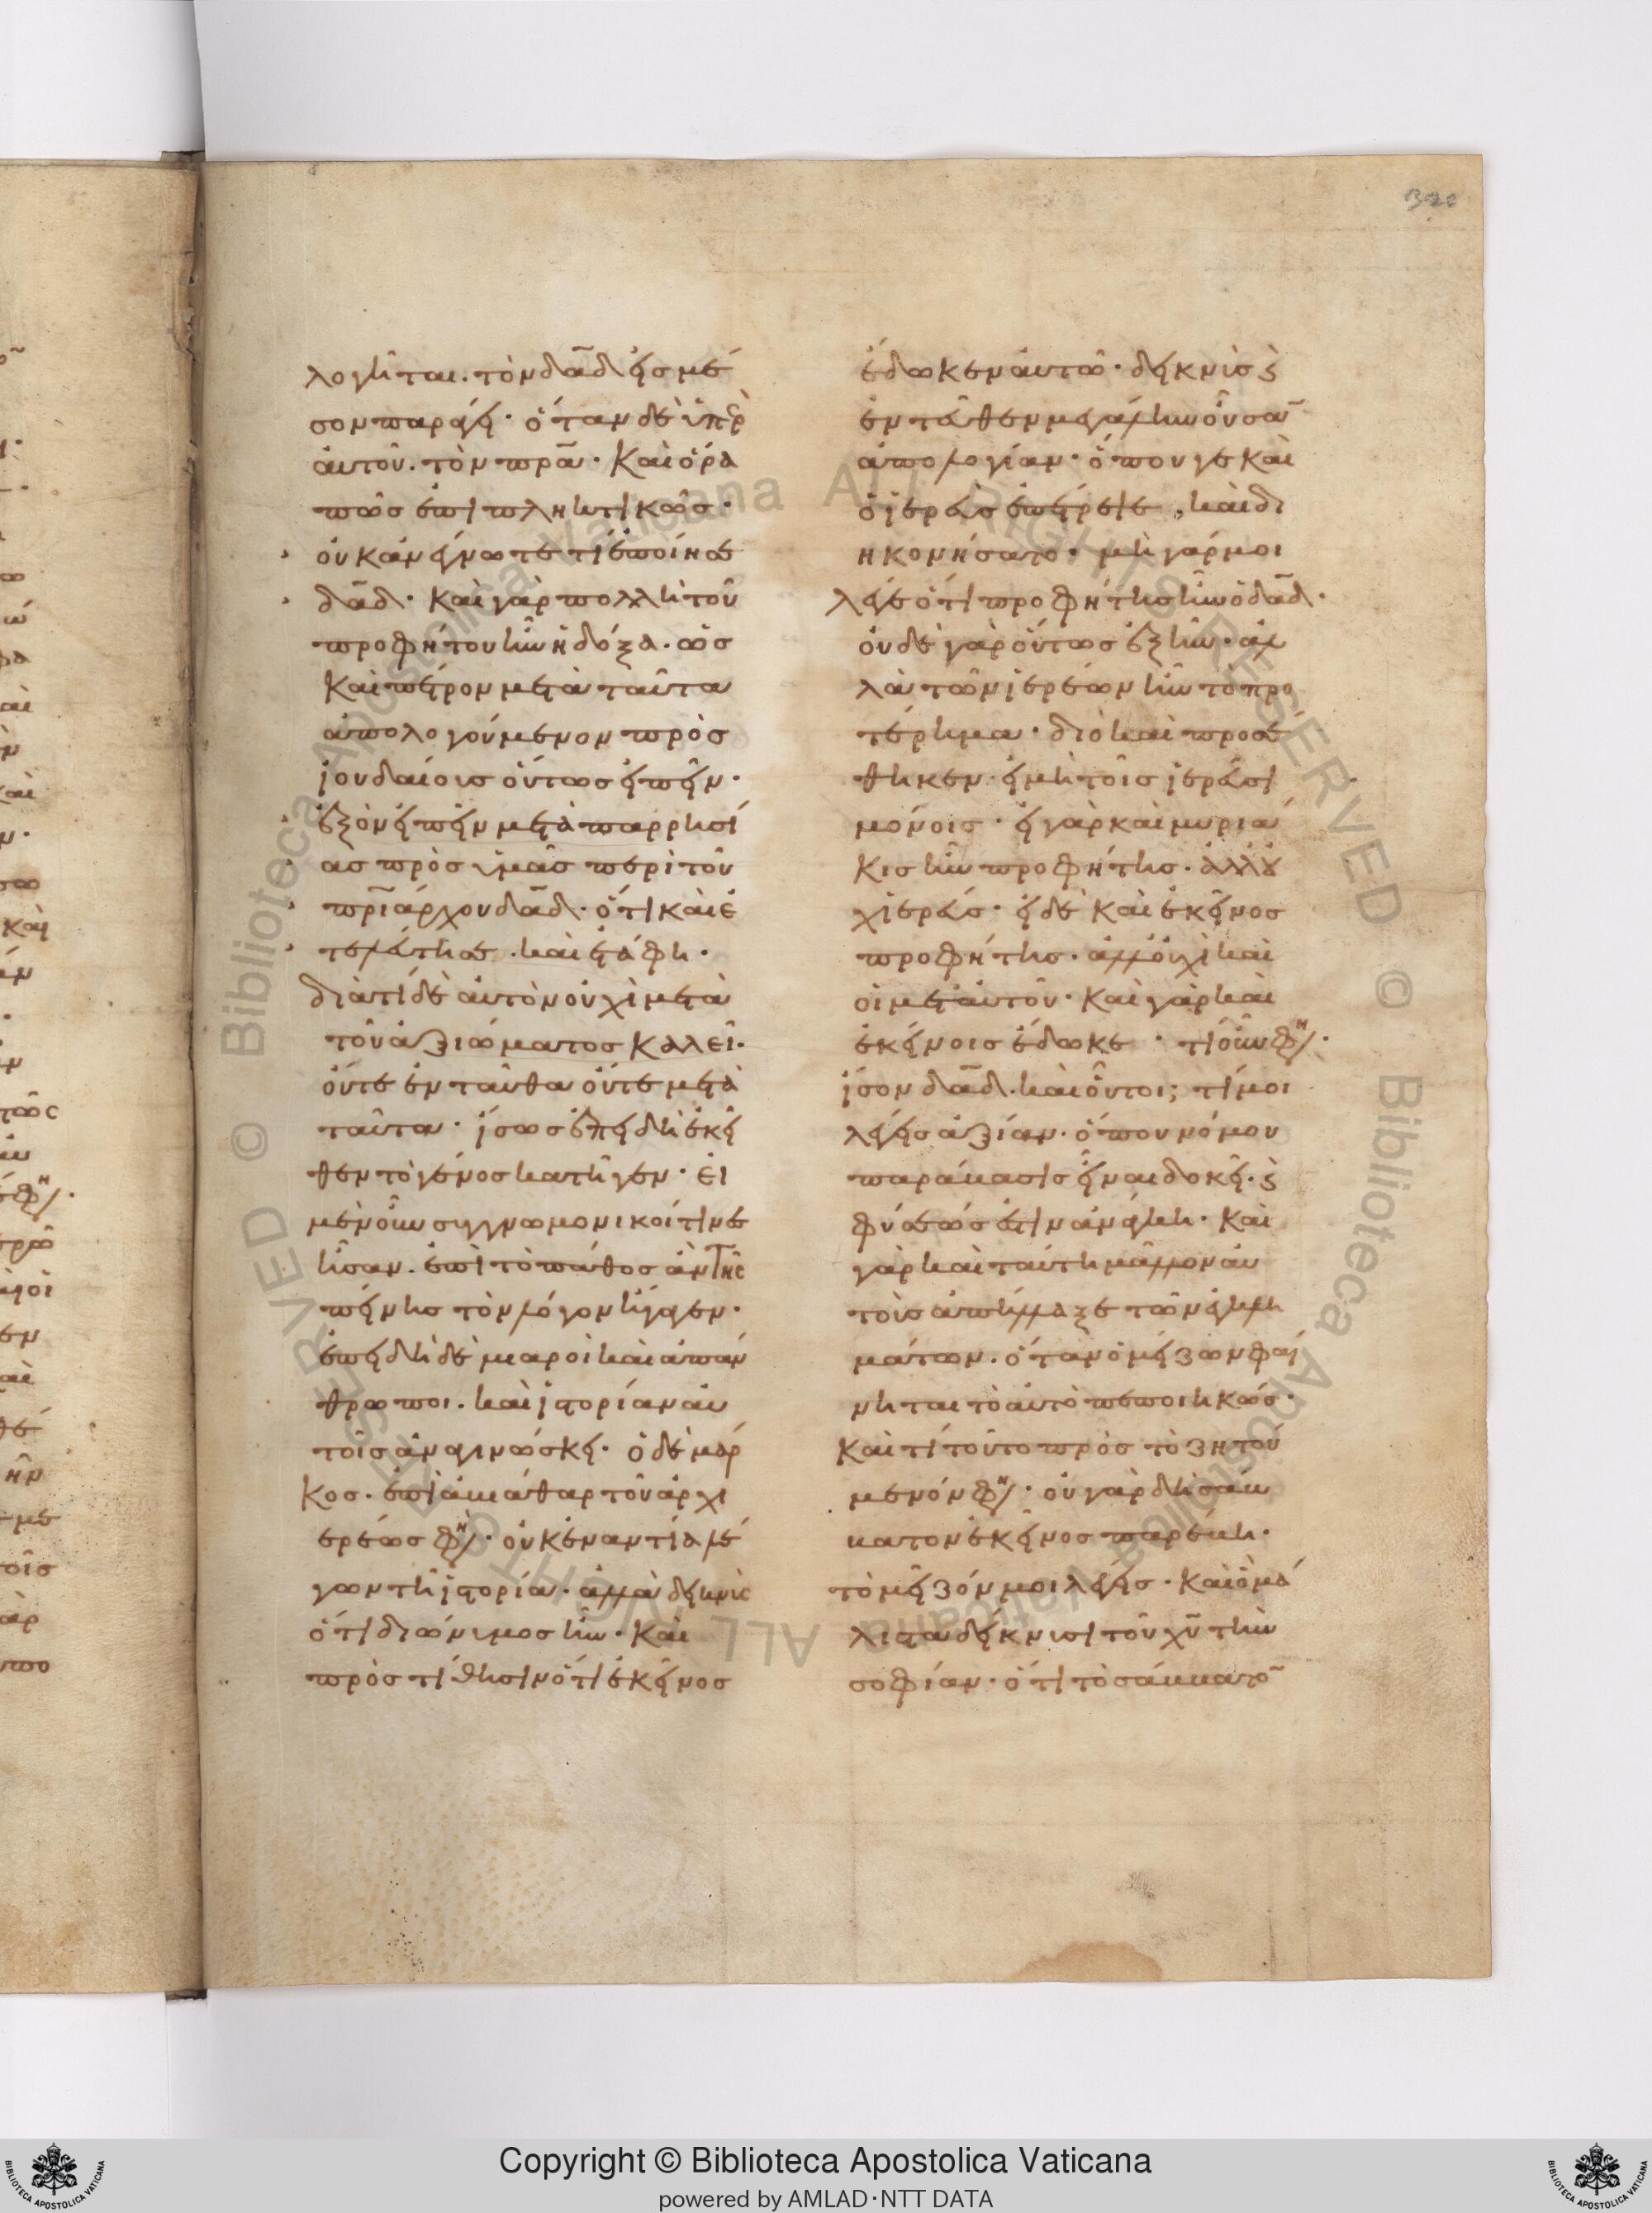 320
λογῆται. τὸν δᾱδ εἰς μέ
σον παράγει· ὅταν δὲ ὑπὲρ
αὐτοῦ. τὸν πρ̄α· Καὶ ὅρα
πῶς ἐπιπληκτικῶς·
οὐκ ἀνέγνωτε τί ἐποίησε
δᾱδ· Καὶ γὰρ πολλὴ τοῦ
προφήτου ἦν ἡ δόξα. ὡς
Καὶ πέτρον μετὰ ταῦτα
ἀπολογούμενον πρὸς
ἰουδαίοις οὕτως εἰπεῖν·
ἐξὸν εἰπεῖν μετὰ παρρησί
ας πρὸς ὑμᾶς περὶ τοῦ
πρ̄ιάρχου δᾱδ· ὅτι καὶ ἐ
τελεύτησε. καὶ ἐτάφη·
διὰ τί δὲ αὐτὸν οὐχὶ μετὰ
τοῦ ἀξιώματος καλεῖ·
οὔτε ἐνταῦθα οὔτε μετὰ
ταῦτα· ἴσως ἐπειδὴ ἐκεῖ
θεν τὸ γένος κατῆγεν· εἰ
μὲν οὖν συγγνωμονικοί τινες
ἦσαν. ἐπὶ τὸ πάθος ἂν τῆς
πείνης τὸν λόγον ἤγαγεν·
ἐπειδὴ δὲ μιαροὶ καὶ ἀπάν
θρωποι. καὶ ἱστορίαν αὐ
τοῖς ἀναγινώσκει· ὁ δὲ μάρ
κος. ἐπὶ ἀβιάθαρ τοῦ ἀρχι
ερέως φη· οὐκ ἐναντία λέ
γων τῇ ἱστορίᾳ· ἀλλὰ δεικνὺς
ὅτι διώνυμος ἦν· Καὶ
προστίθησιν ὅτι ἐκεῖνος
ἔδωκεν αὐτῶ· δεικνὺς ϗ
ἐντεῦθεν μεγάλην οὖσᾱ
ἀπολογίαν· ὅπου γε Καὶ
ὁ ἱερεὺς ἐπέτρεψε, καὶ δι
ηκονήσατο· μὴ γάρ μοι
λέγε ὅτι προφήτης ἦν ὁ δᾱδ·
οὐδὲ γὰρ οὕτως ἐξῆν· ἀλ
λὰ τῶν ἱερέων ἦν τὸ προ
τέρημα· διὸ καὶ προσέ
θηκεν· εἰ μὴ τοῖς ἱερεῦσι
μόνοις· εἰ γὰρ καὶ μυριά
κις ἦν προφήτης. ἀλλ' οὐ
χ ἱερεύς· εἰ δὲ Καὶ ἐκεῖνος
προφήτης. ἀλλ' οὐχὶ καὶ
οἱ μετ' αὐτοῦ· Καὶ γὰρ καὶ
ἐκείνοις ἔδωκε· τί οὖν φη·
ἴσον δᾱδ. καὶ οὗτοι; τί μοι
λέγεις ἀξίαν. ὅπου νόμου
παράβασις εἶναι δοκεῖ. ϗ
φύσεώς ἐστιν ἀνάγκη· Καὶ
γὰρ καὶ ταύτη μᾶλλον αὐ
τοὺς ἀπήλλαξε τῶν ἐγκλη
μάτων. ὅταν ὁ μείζων φαί
νηται τὸ αὐτὸ πεποιηκώς·
Καὶ τί τοῦτο πρὸς τὸ ζητού
μενόν φη· οὐ γὰρ δὴ σάβ
βατον ἐκεῖνος παρέβη·
τὸ μεῖζόν μοι λέγεις· Καὶ ὃ μά
λιστα δείκνυσι τοῦ χῡ τὴν
σοφίαν· ὅτι τὸ σάββατο̄
Copyright © Biblioteca Apostolica Vaticana
powered by AMLAD·NTT DATA